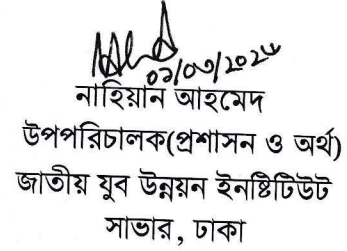 ০২/০৩/২০২৫
নাহিয়ান আহমেদ
উপপরিচালক(প্রশাসন ও অর্থ)
জাতীয় যুব উন্নয়ন ইনষ্টিটিউট
সাভার, ঢাকা